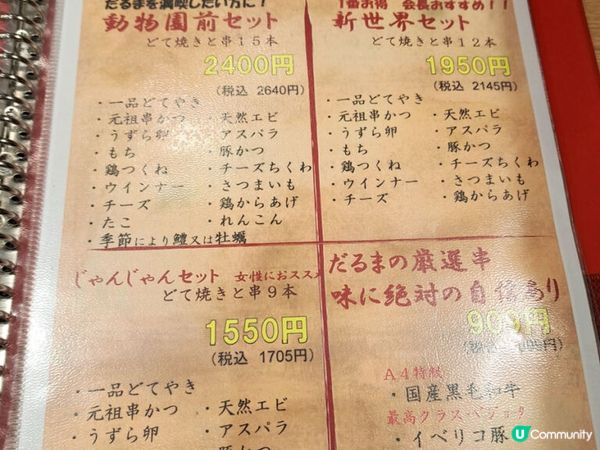 だるまを満喫したい方に！
動物園前セット
どて焼きと串15本
2400円
(税込 2640円)
・一品どてやき
・元祖串かつ ・天然エビ
・うずら卵 ・アスパラ
・もち ・豚かつ
・鶏つくね ・チーズちくわ
・ウインナー ・さつまいも
・チーズ ・鶏からあげ
・たこ ・れんこん
・季節により鱧又は牡蠣
1番お得 会長おすすめ！！
新世界セット
どて焼きと串12本
1950円
(税込 2145円)
・一品どてやき
・元祖串かつ ・天然エビ
・うずら卵 ・アスパラ
・もち ・豚かつ
・鶏つくね ・チーズちくわ
・ウインナー ・さつまいも
・チーズ ・鶏からあげ
じゃんじゃんセット 女性におススメ
どて焼きと串9本
1550円
(税込 1705円)
・一品どてやき
・元祖串かつ ・天然エビ
・うずら卵 ・アスパラ
・豚かつ
だるまの厳選串
味に絶対の自信あり
円
(税込
A4特級
・国産黒毛和牛
最高クラスベジョータ
・イベリコ豚
U Community